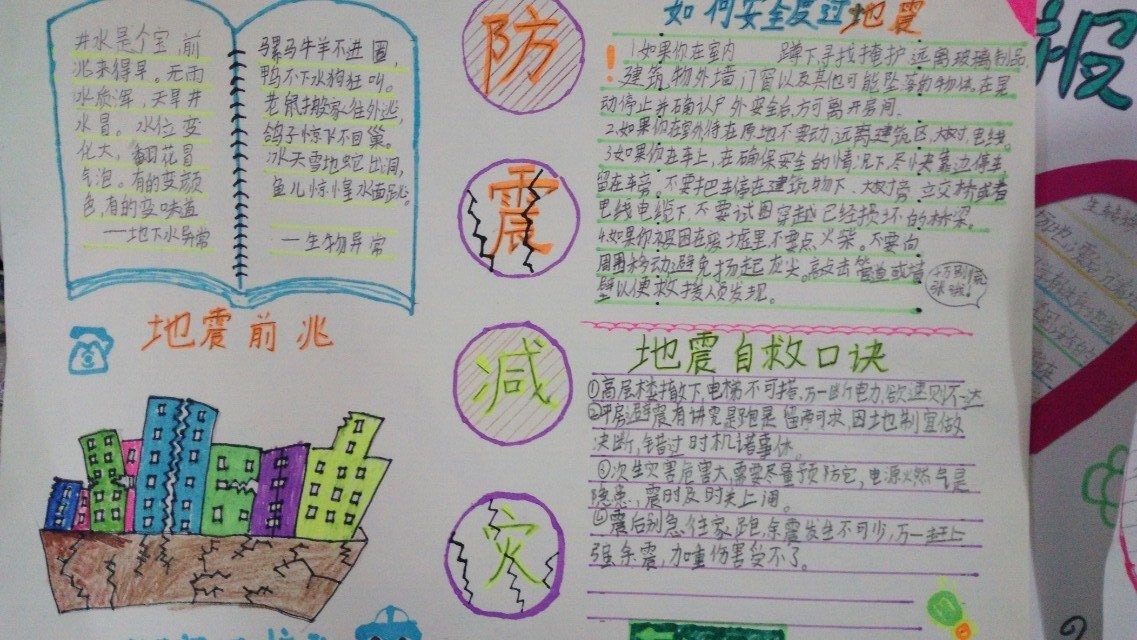 井水是个宝,前
兆来得早。无雨
水质浑,天旱井
水冒。水位变
化大,翻花冒
气泡。有的变颜
色,有的变味道
——地下水异常
骡马牛羊不进圈,
鸭不下水狗狂叫。
老鼠搬家往外逃,
鸽子惊飞不回巢。
冰天雪地蛇出洞,
鱼儿惊惶水面跳。
——生物异常
地震前兆
防
震
减
灾
如何安全度过地震
!
1.如果你在室内 蹲下寻找掩护,远离玻璃制品
建筑物外墙门窗以及其他可能坠落的物体,在晃
动停止并确认户外安全后,方可离开房间.
2.如果你在室外待在原地不要动,远离建筑区,大树电线。
3.如果你在车上,在确保安全的情况下,尽快靠边停车
留在车旁。不要把车停在建筑物下、大树旁、立交桥或者
电线电缆下,不要试图穿越已经损坏的桥梁。
4.如果你被困在废墟里不要点火柴。不要向
周围移动,避免扬起灰尖。敲击管道或墙
壁以便救援人员发现。
千万别慌
张哦!
地震自救口诀
①高层楼撤下,电梯不可搭,万一断电力,欲速则不达
②平房避震有讲究,是跑是留两可求,因地制宜做
决断,错过时机诸事休。
③次生灾害危害大,需要尽量预防它,电源燃气是
隐患,震时及时关上闸。
④震后别急往家跑,余震发生不可少,万一赶上
强余震,加重伤害受不了。
报